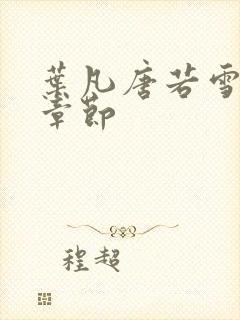 葉凡唐若雪
章節
程超